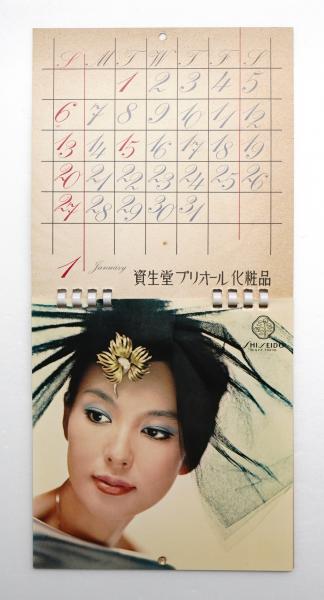 S M T W T F S
1 2 3 4 5
6 7 8 9 10 11 12
13 14 15 16 17 18 19
20 21 22 23 24 25 26
27 28 29 30 31
1 January 資生堂 プリオール 化粧品
SHISEIDO